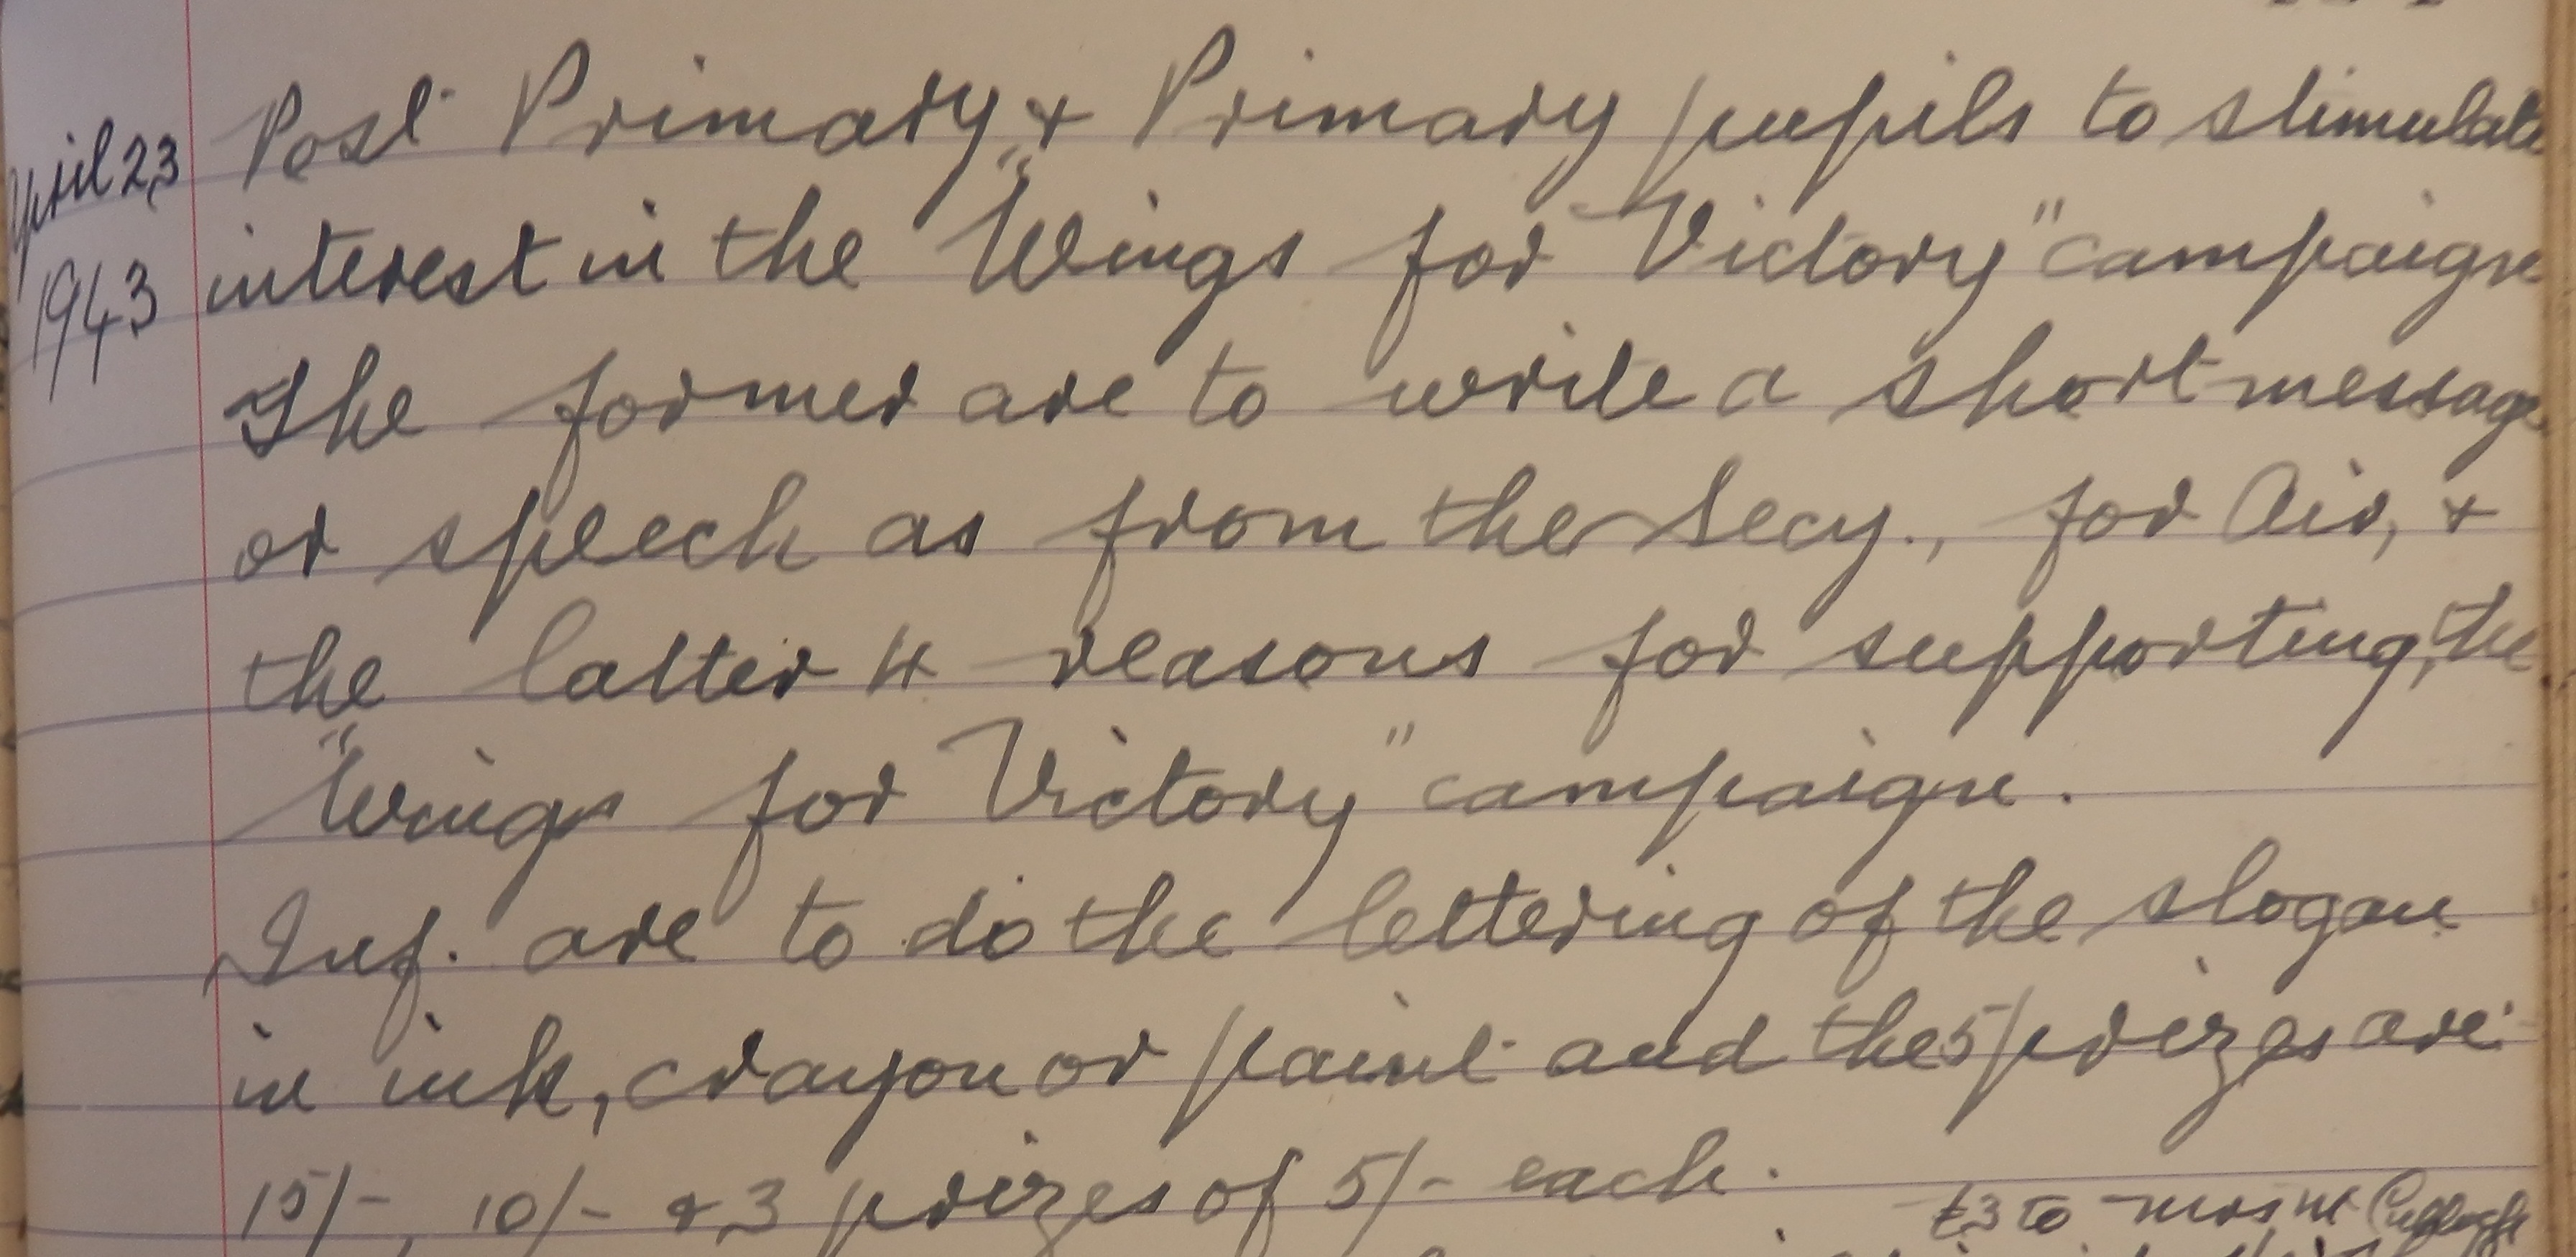 April 23 Post Primary & Primary pupils to stimulate
1943 interest in the "Wings for Victory" campaign
The former are to write a short message
or speech as from the Secy., for Air, &
the latter 4 reasons for supporting, the
"Wings for Victory" campaign.
Inf. are to do the lettering of the slogan
in ink, crayon or paint and the 5 prizes are:
15/-, 10/- & 3 prizes of 5/- each.
£3 to Miss M